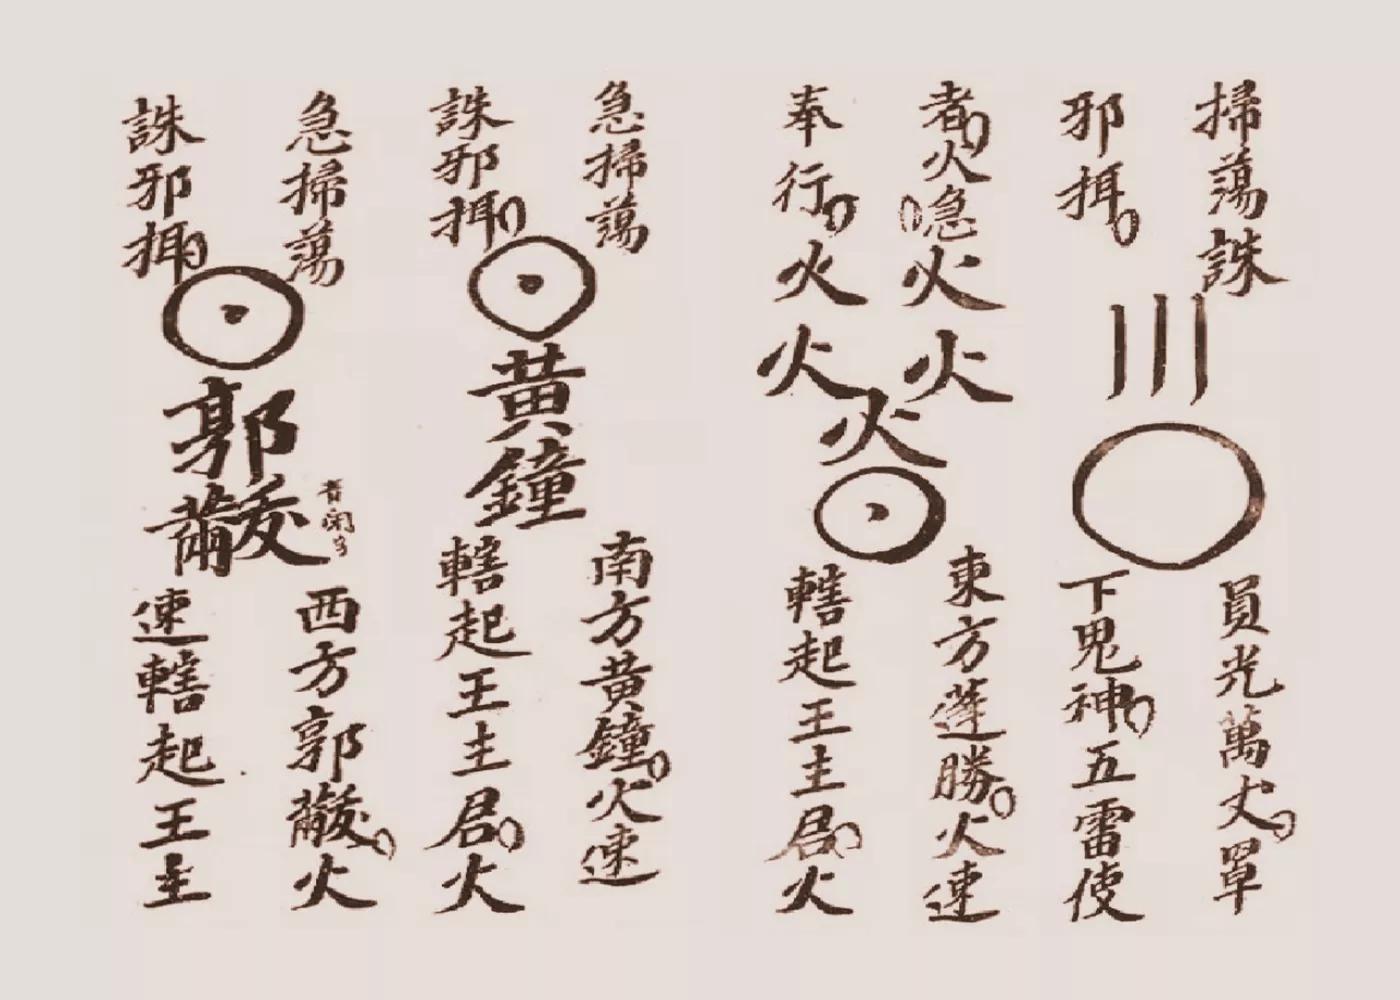 掃蕩誅
邪
員光萬丈罩
下鬼神五雷使
者火急火火
奉行火火
火
東方蓮勝火速
轄起王主君火
急掃蕩
誅邪
黄鐘
南方黄鐘火速
轄起王主君火
急掃蕩
誅邪
郭
西方郭火
速轄起王主